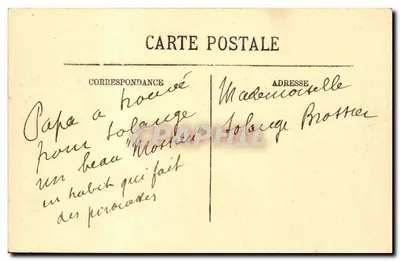 CARTE POSTALE
CORRESPONDANCE
ADRESSE
Papa a trouvé
pour Solange
un beau "Mossieu"
en habit qui fait
des pirouettes
Mademoiselle
Solange Brossier